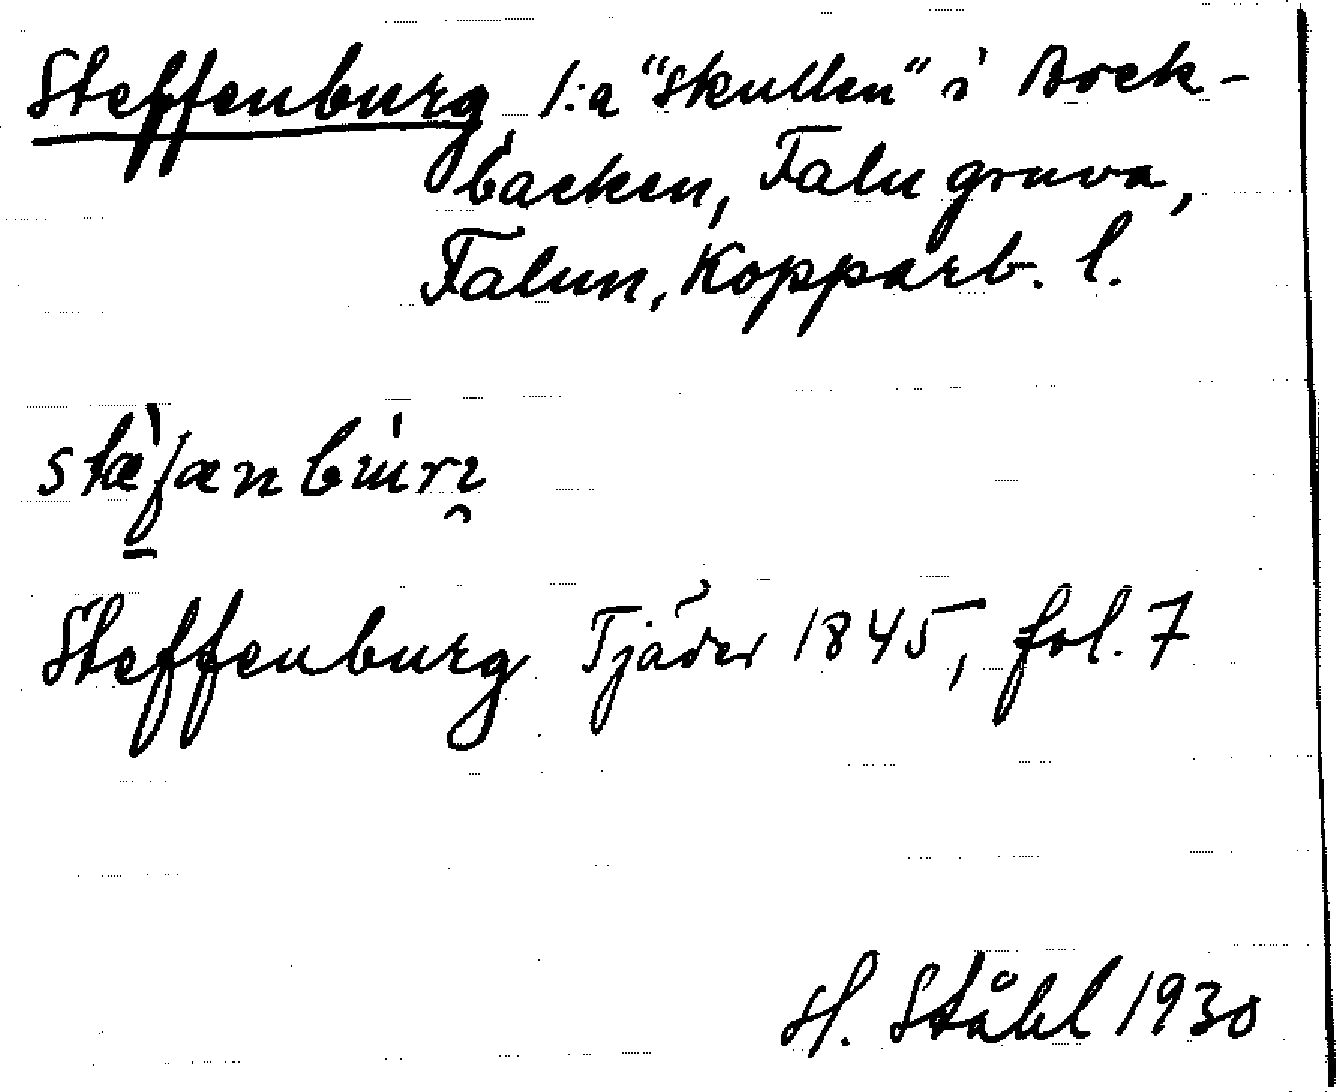 Steffenburg, l:a "Skullen" i Bock-
backen, Falu gruva,
Falun, Kopparb. l.
stæ̀fanbúrı
Steffenburg Tjäder 1845, fol. 7
H. Ståhl 1930